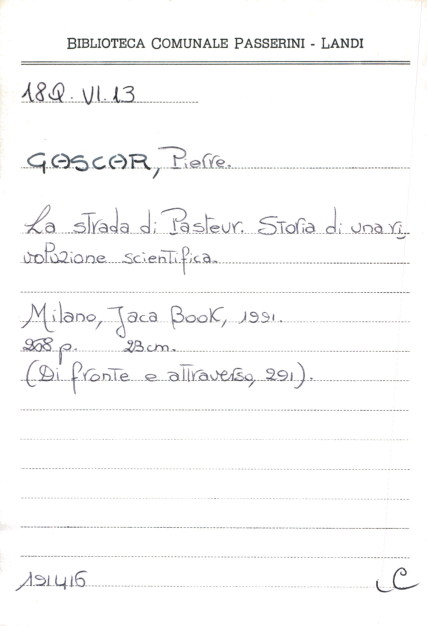 BIBLIOTECA COMUNALE PASSERINI - LANDI
18Q. VI. 13
GASCAR, Pierre.
La strada di Pasteur. Storia di una ri
voluzione scientifica.
Milano, Jaca Book, 1991.
268 p. 23 cm.
(Di fronte e attraverso, 291).
191416
C